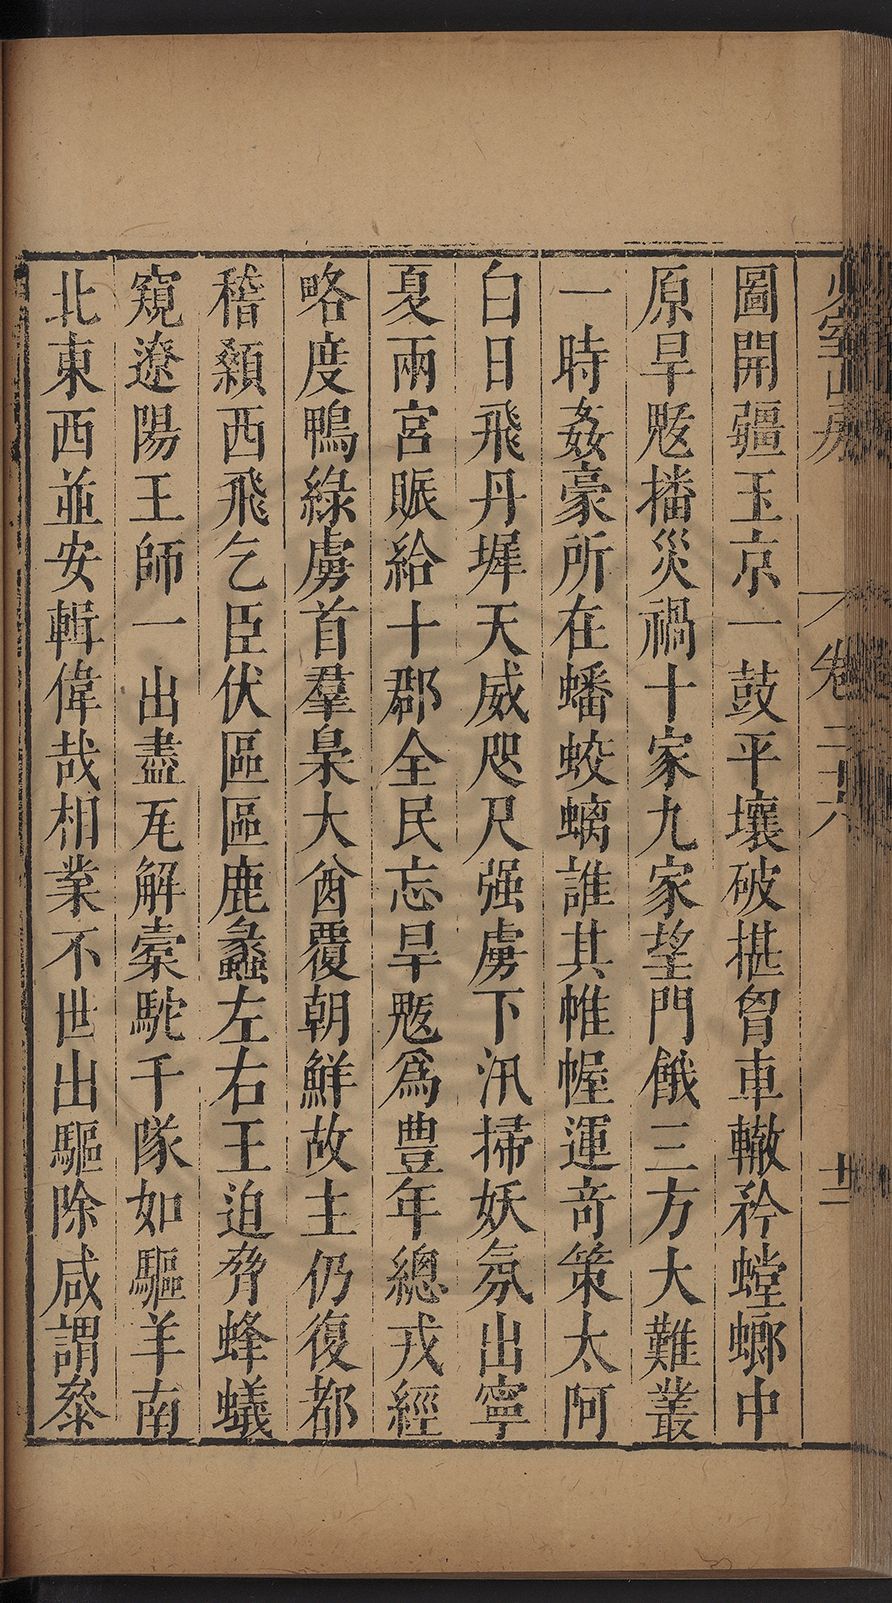 少室山房 卷二十六 十二
圖開疆玉京一鼓平壤破堪胷車轍矜螳螂中
原旱魃播災禍十家九家望門餓三方大難叢
一時姦豪所在蟠蛟螭誰其帷幄運奇策太阿
白日飛丹墀天威咫尺强虜下汛掃妖氛出寧
夏兩宮賑給十郡全民忘旱魃爲豊年總戎經
略度鴨綠虜首羣梟大酋覆朝鮮故主仍復都
稽顙西飛乞臣伏區區鹿蠡左右王迫脅蜂蟻
窺遼陽王師一出盡瓦解橐駝千隊如驅羊南
北東西並安輯偉哉相業不世出驅除咸謂叅